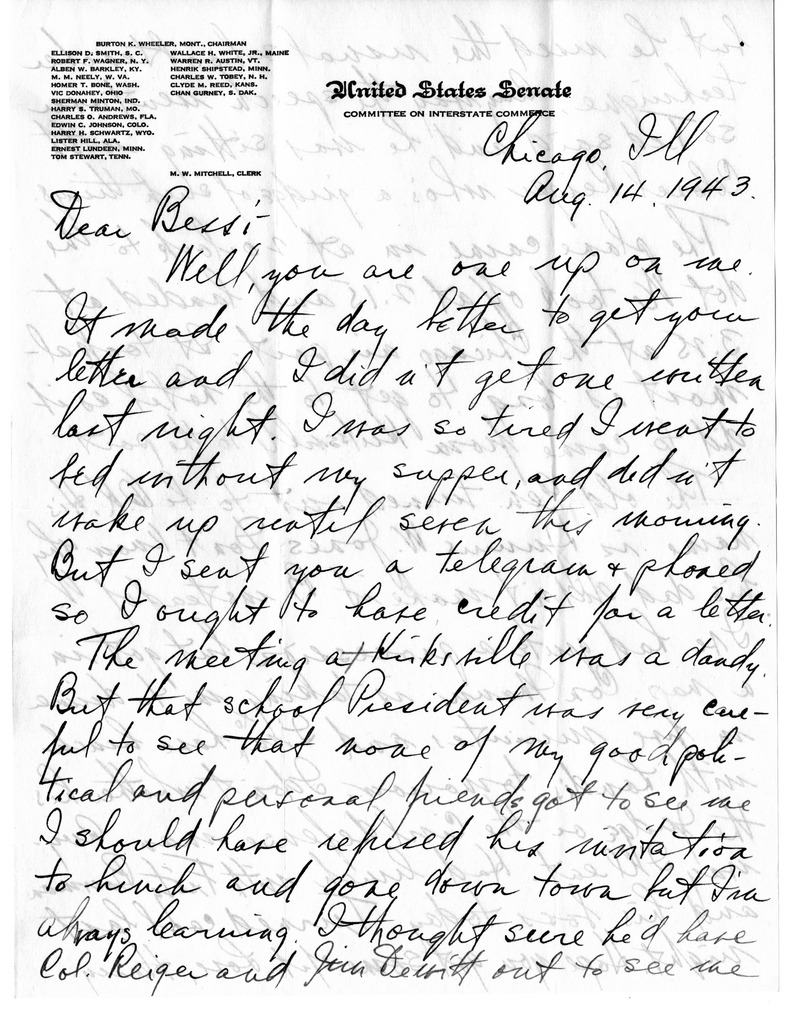 BURTON K. WHEELER, MONT., CHAIRMAN
ELLISON D. SMITH, S. C.
ROBERT F. WAGNER, N. Y.
ALBEN W. BARKLEY, KY.
M. M. NEELY, W. VA.
HOMER T. BONE, WASH.
VIC DONAHEY, OHIO
SHERMAN MINTON, IND.
HARRY S. TRUMAN, MO.
CHARLES O. ANDREWS, FLA.
EDWIN C. JOHNSON, COLO.
HARRY H. SCHWARTZ, WYO.
LISTER HILL, ALA.
ERNEST LUNDEEN, MINN.
TOM STEWART, TENN.
WALLACE H. WHITE, JR., MAINE
WARREN R. AUSTIN, VT.
HENRIK SHIPSTEAD, MINN.
CHARLES W. TOBEY, N. H.
CLYDE M. REED, KANS.
CHAN GURNEY, S. DAK.
M. W. MITCHELL, CLERK
United States Senate
COMMITTEE ON INTERSTATE COMMERCE
Chicago, Ill
Aug. 14, 1943.
Dear Bess:-
Well, you are one up on me.
It made the day better to get your
letter and I didn't get one written
last night. I was so tired I went to
bed without my supper, and didn't
wake up until seven this morning.
But I sent you a telegram & phoned
so I ought to have credit for a letter.
The meeting at Kirksville was a dandy.
But that school President was very care-
ful to see that none of my good poli-
tical and personal friends got to see me
I should have refused his invitation
to lunch and gone down town but I'm
always learning. I thought sure he'd have
Col. Reiger and Jim Dewitt out to see me